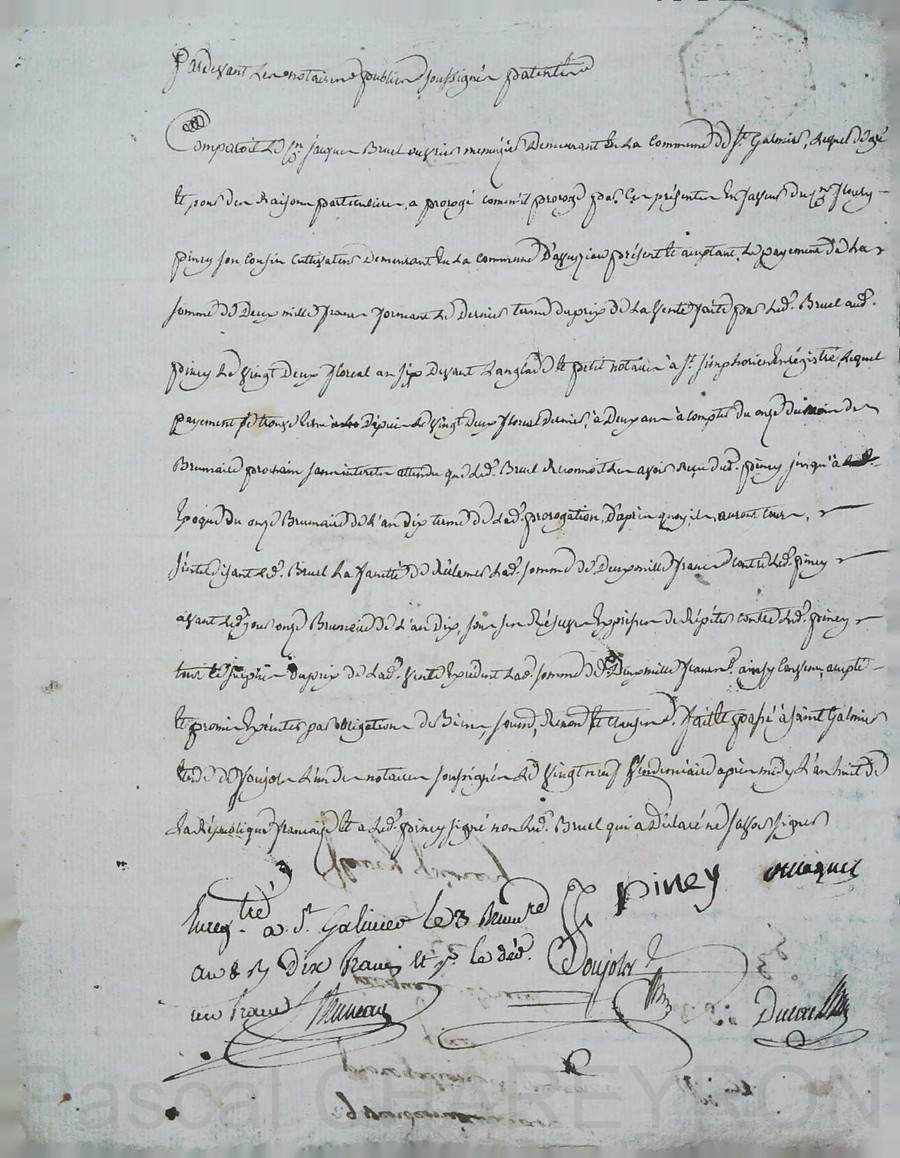 Pardevant Les notaires publics soussignés patentés
Comparoit Le Cn. jacques Bruel ouvrier menuizier Demeurant En La Commune De St. Galmier, Lequel De gré
Et pour des Raisons particulieres, a prorogé comm'il proroge par Ces présentes En faveur du Cn. fleury
piney son cousin cultivateur Demeurant En La commune D'aveizieu présent Et acceptant, Le payement De La
somme De Deux mille francs formant Le Dernier terme du prix De La Vente faite par Led. Bruel aud.
piney Le Vingt Deux floreal an six Devant Langlade Le petit notaire à St. simphorien Enrégistré, Lequel
payement se trouve Depuis Le Vingt Deux floreal Dernier, à Deux ans à compter du onze du mois de
Brumaire prochain sans interets attendu que Led. Bruel Reconnoit Les avoir Reçu dud. piney jusqu'à
Epoque Du onze Brumaire De L'an Dix terme De Lad. prorogation, D'après quoy,
s'interdisant Led. Bruel La faculté De Réclamer Lad. somme De Deux mille francs contre Led. piney
avant Led. jour onze Brumaire De L'an Dix, sous sa Réserve Expresse de Répéter contre Led. piney
tout Le surplus du prix De Lad. Vente Excédent Lad. somme De Deux mille francs. ainsy convenu, accepté
Et promis Exécuter par obligation de Biens, soumis, Renon. Et clauses. fait Et passé à saint Galmier
Etude De Poujol L'un des notaires soussignés Le Vingt neuf Vendemiaire après midy L'an huit De
La République française Et a Led. piney signé non Led. Bruel qui a Déclaré ne savoir signer
piney
Enregtré a St. Galmier le 3 Brumre
an 8 Rs Dix francs et pr. le déc.
un franc
Poujol